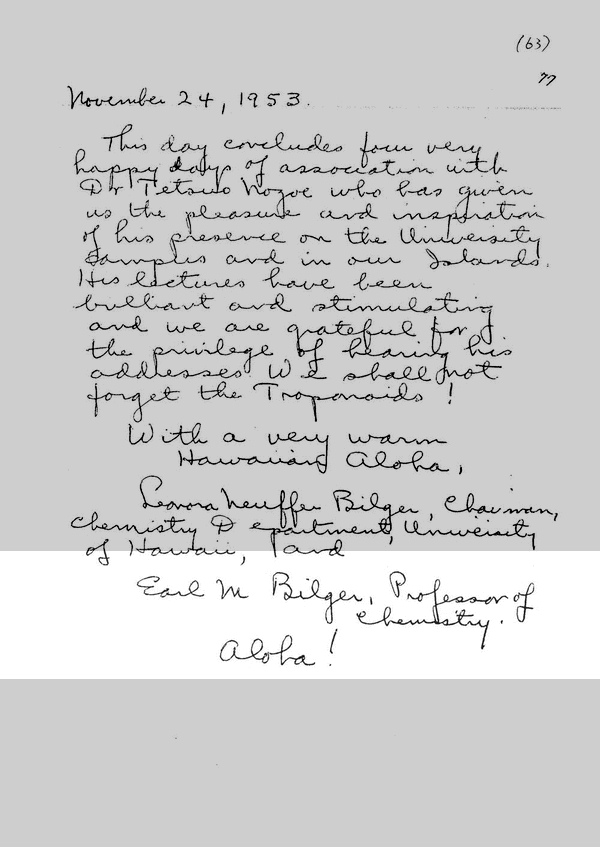 (63)
77
November 24, 1953.
This day concludes four very
happy days of association with
Dr Tetsuo Nozoe who has given
us the pleasure and inspiration
of his presence on the University
Campus and in our Islands.
His lectures have been
brilliant and stimulating
and we are grateful for
the privilege of hearing his
addresses. We shall not
forget the Troponoids!
With a very warm
Hawaiian Aloha,
Leonora Neuffer Bilger, Chairman,
Chemistry Department, University
of Hawaii, and
Earl M Bilger, Professor of
Chemistry.
Aloha!